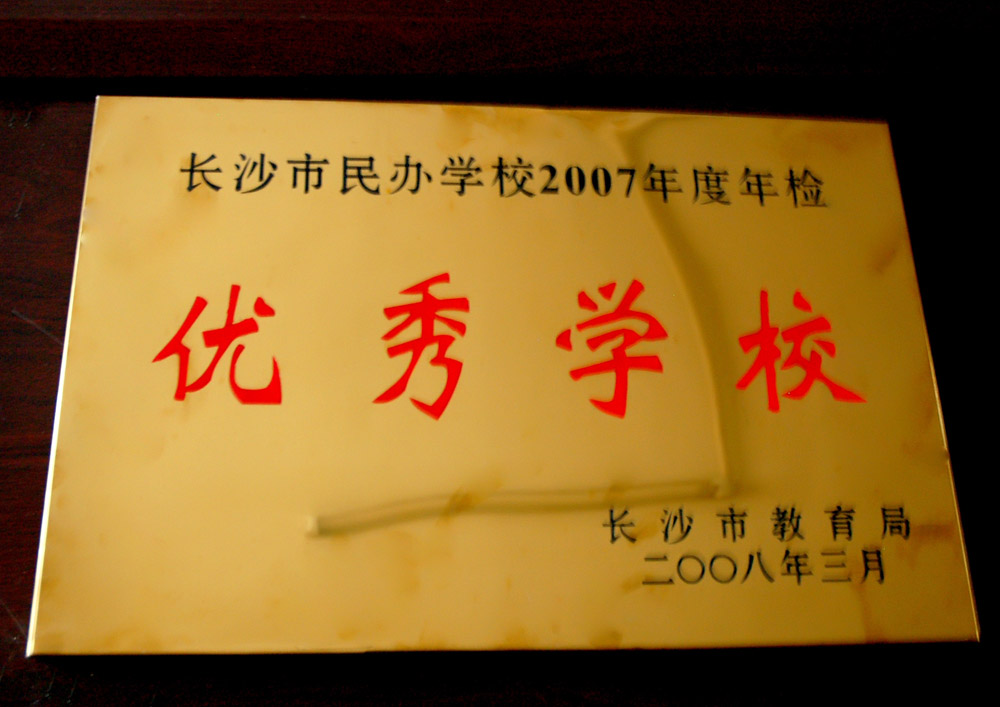 长沙市民办学校2007年度年检
优秀学校
长沙市教育局
二〇〇八年三月